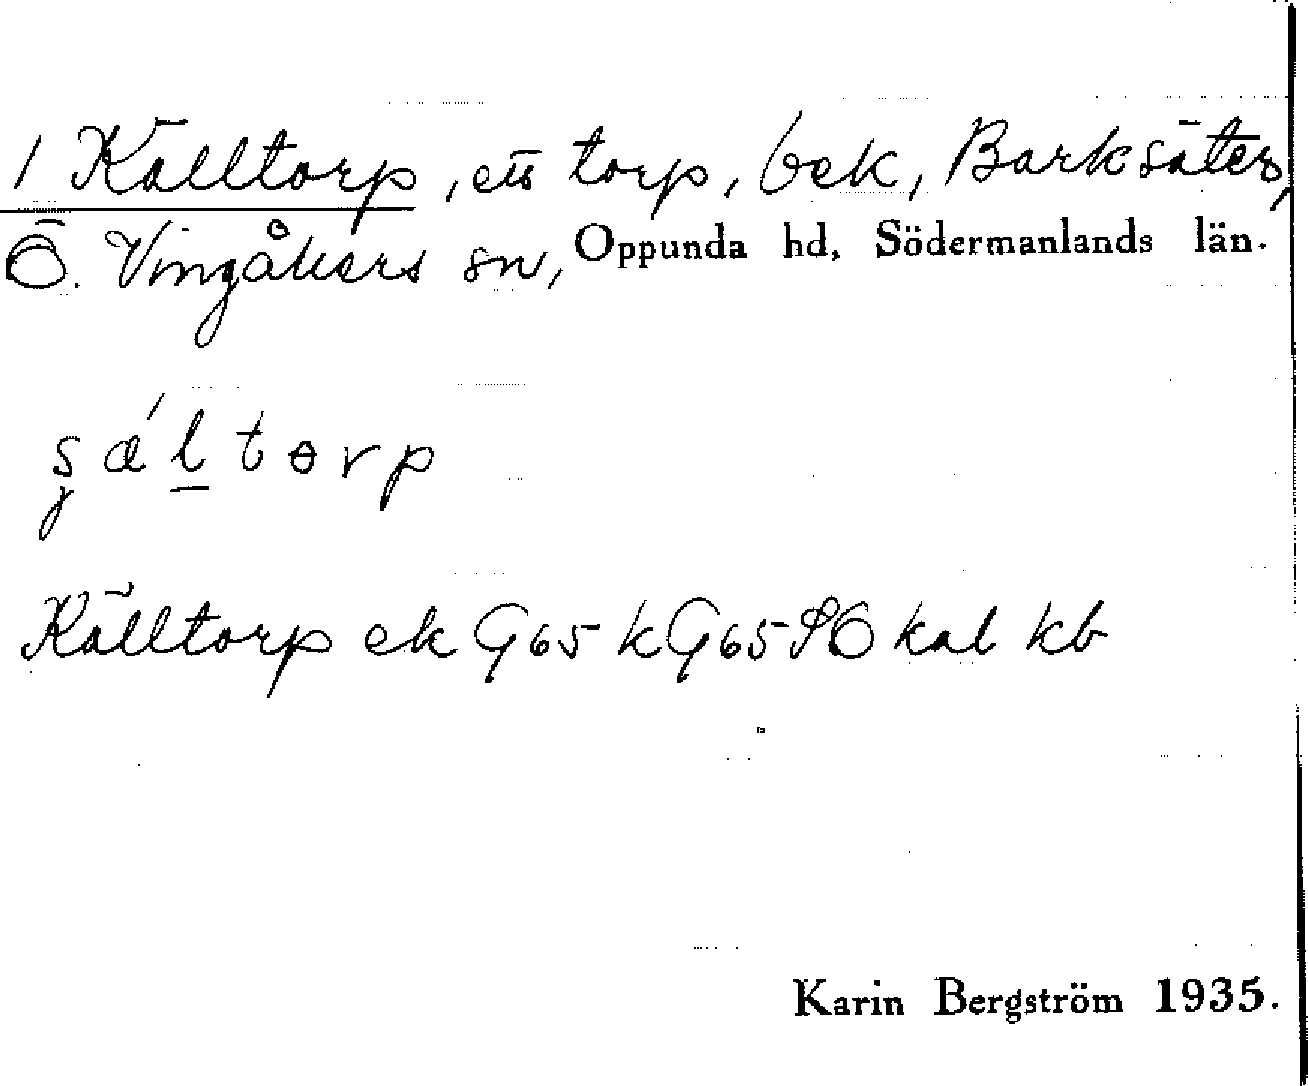 1 Källtorp, ett torp, bek, Barksäter,
Ö. Vingåkers sn, Oppunda hd, Södermanlands län.
ʂæ´ltorp
Källtorp ek G65 k G65 SO kal kb
Karin Bergström 1935.